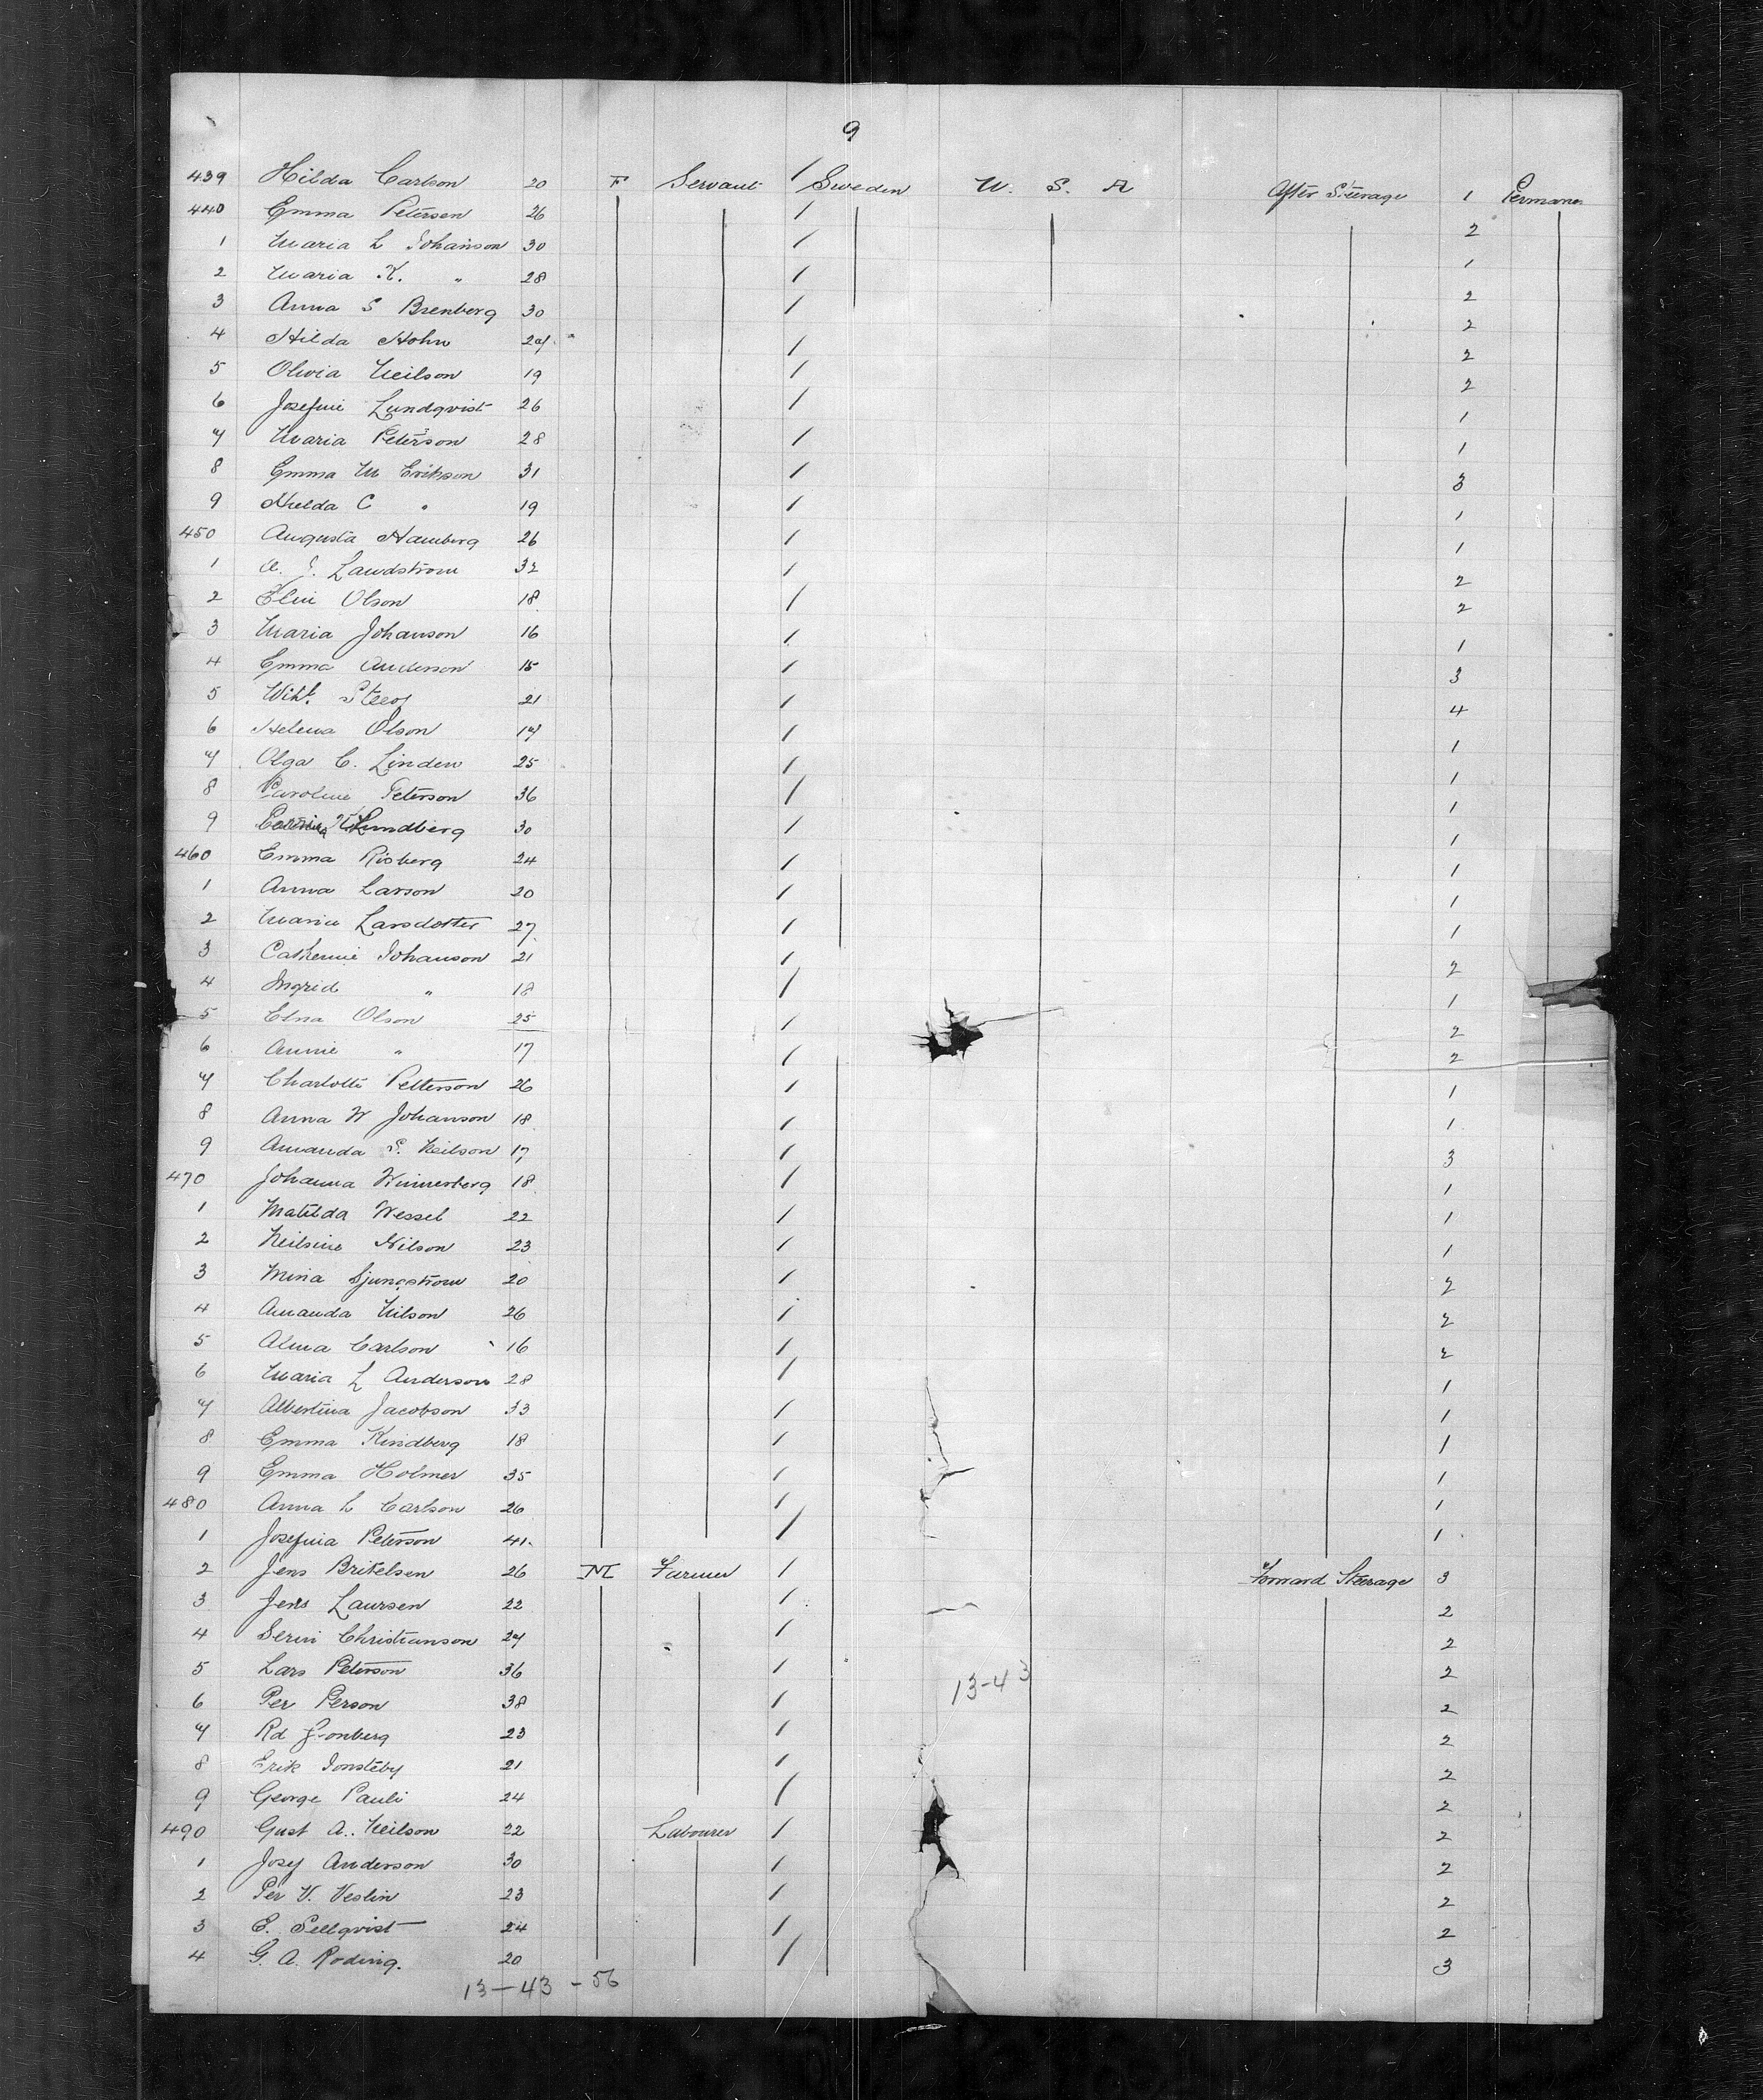 9
439 Hilda Carlson 20 F Servant / Sweden U. S. A After Steerage 1 Permanen
440 Emma Petersen 26 / 2
1 Maria L Johanson 30 / 1
2 Maria K. " 28 / 2
3 Anna S Brenberg 30 / 2
4 Hilda Hohn 27 / 2
5 Olivia Neilson 19 / 2
6 Josefine Lundqvist 26 / 1
7 Maria Peterson 28 / 1
8 Emma M Erikson 31 / 3
9 Hulda C " 19 / 1
450 Augusta Hamberg 26 / 1
1 A. J. Landstrom 32 / 2
2 Elin Olson 18 / 2
3 Maria Johanson 16 / 1
4 Emma Anderson 15 / 3
5 Wilh. 21 / 4
6 Helena Olson 17 / 1
7 Olga C. Linden 25 / 1
8 Caroline Peterson 36 / 1
9 Lundberg 30 / 1
460 Emma Risberg 24 / 1
1 Anna Larson 20 / 1
2 Maria Larsdotter 27 / 1
3 Catherine Johanson 21 / 2
4 Ingrid " 18 / 1
5 Elna Olson 25 / 2
6 Annie " 17 / 2
7 Charlotte Petterson 26 / 1
8 Anna W Johanson 18 / 1
9 Amanda S. Neilson 17 / 3
470 Johanna Winnerberg 18 / 1
1 Matilda Wessel 22 / 1
2 Neilsine Nilson 23 / 1
3 Mina Ljungstrom 20 / 2
4 Amanda Nilson 26 / 2
5 Alma Carlson 16 / 2
6 Maria L Anderson 28 / 1
7 Albertina Jacobson 33 / 1
8 Emma Kindberg 18 / 1
9 Emma Holmer 35 / 1
480 Anna L Carlson 26 / 1
1 Josefina Peterson 41 / 1
2 Jens Britelsen 26 M Farmer / Forward Steerage 3
3 Jens Laursen 22 / 2
4 Serin Christianson 27 / 2
5 Lars Peterson 36 / 2
6 Per Person 38 / 13-43 2
7 Rd 23 / 2
8 Erik Jonsteby 21 / 2
9 George Pauli 24 / 2
490 Gust A. Neilson 22 Labourer / 2
1 Josef Anderson 30 / 2
2 Per V. Veslin 23 / 2
3 E. Sellqvist 24 / 2
4 G. A. Roding. 20 / 3
13-43-56